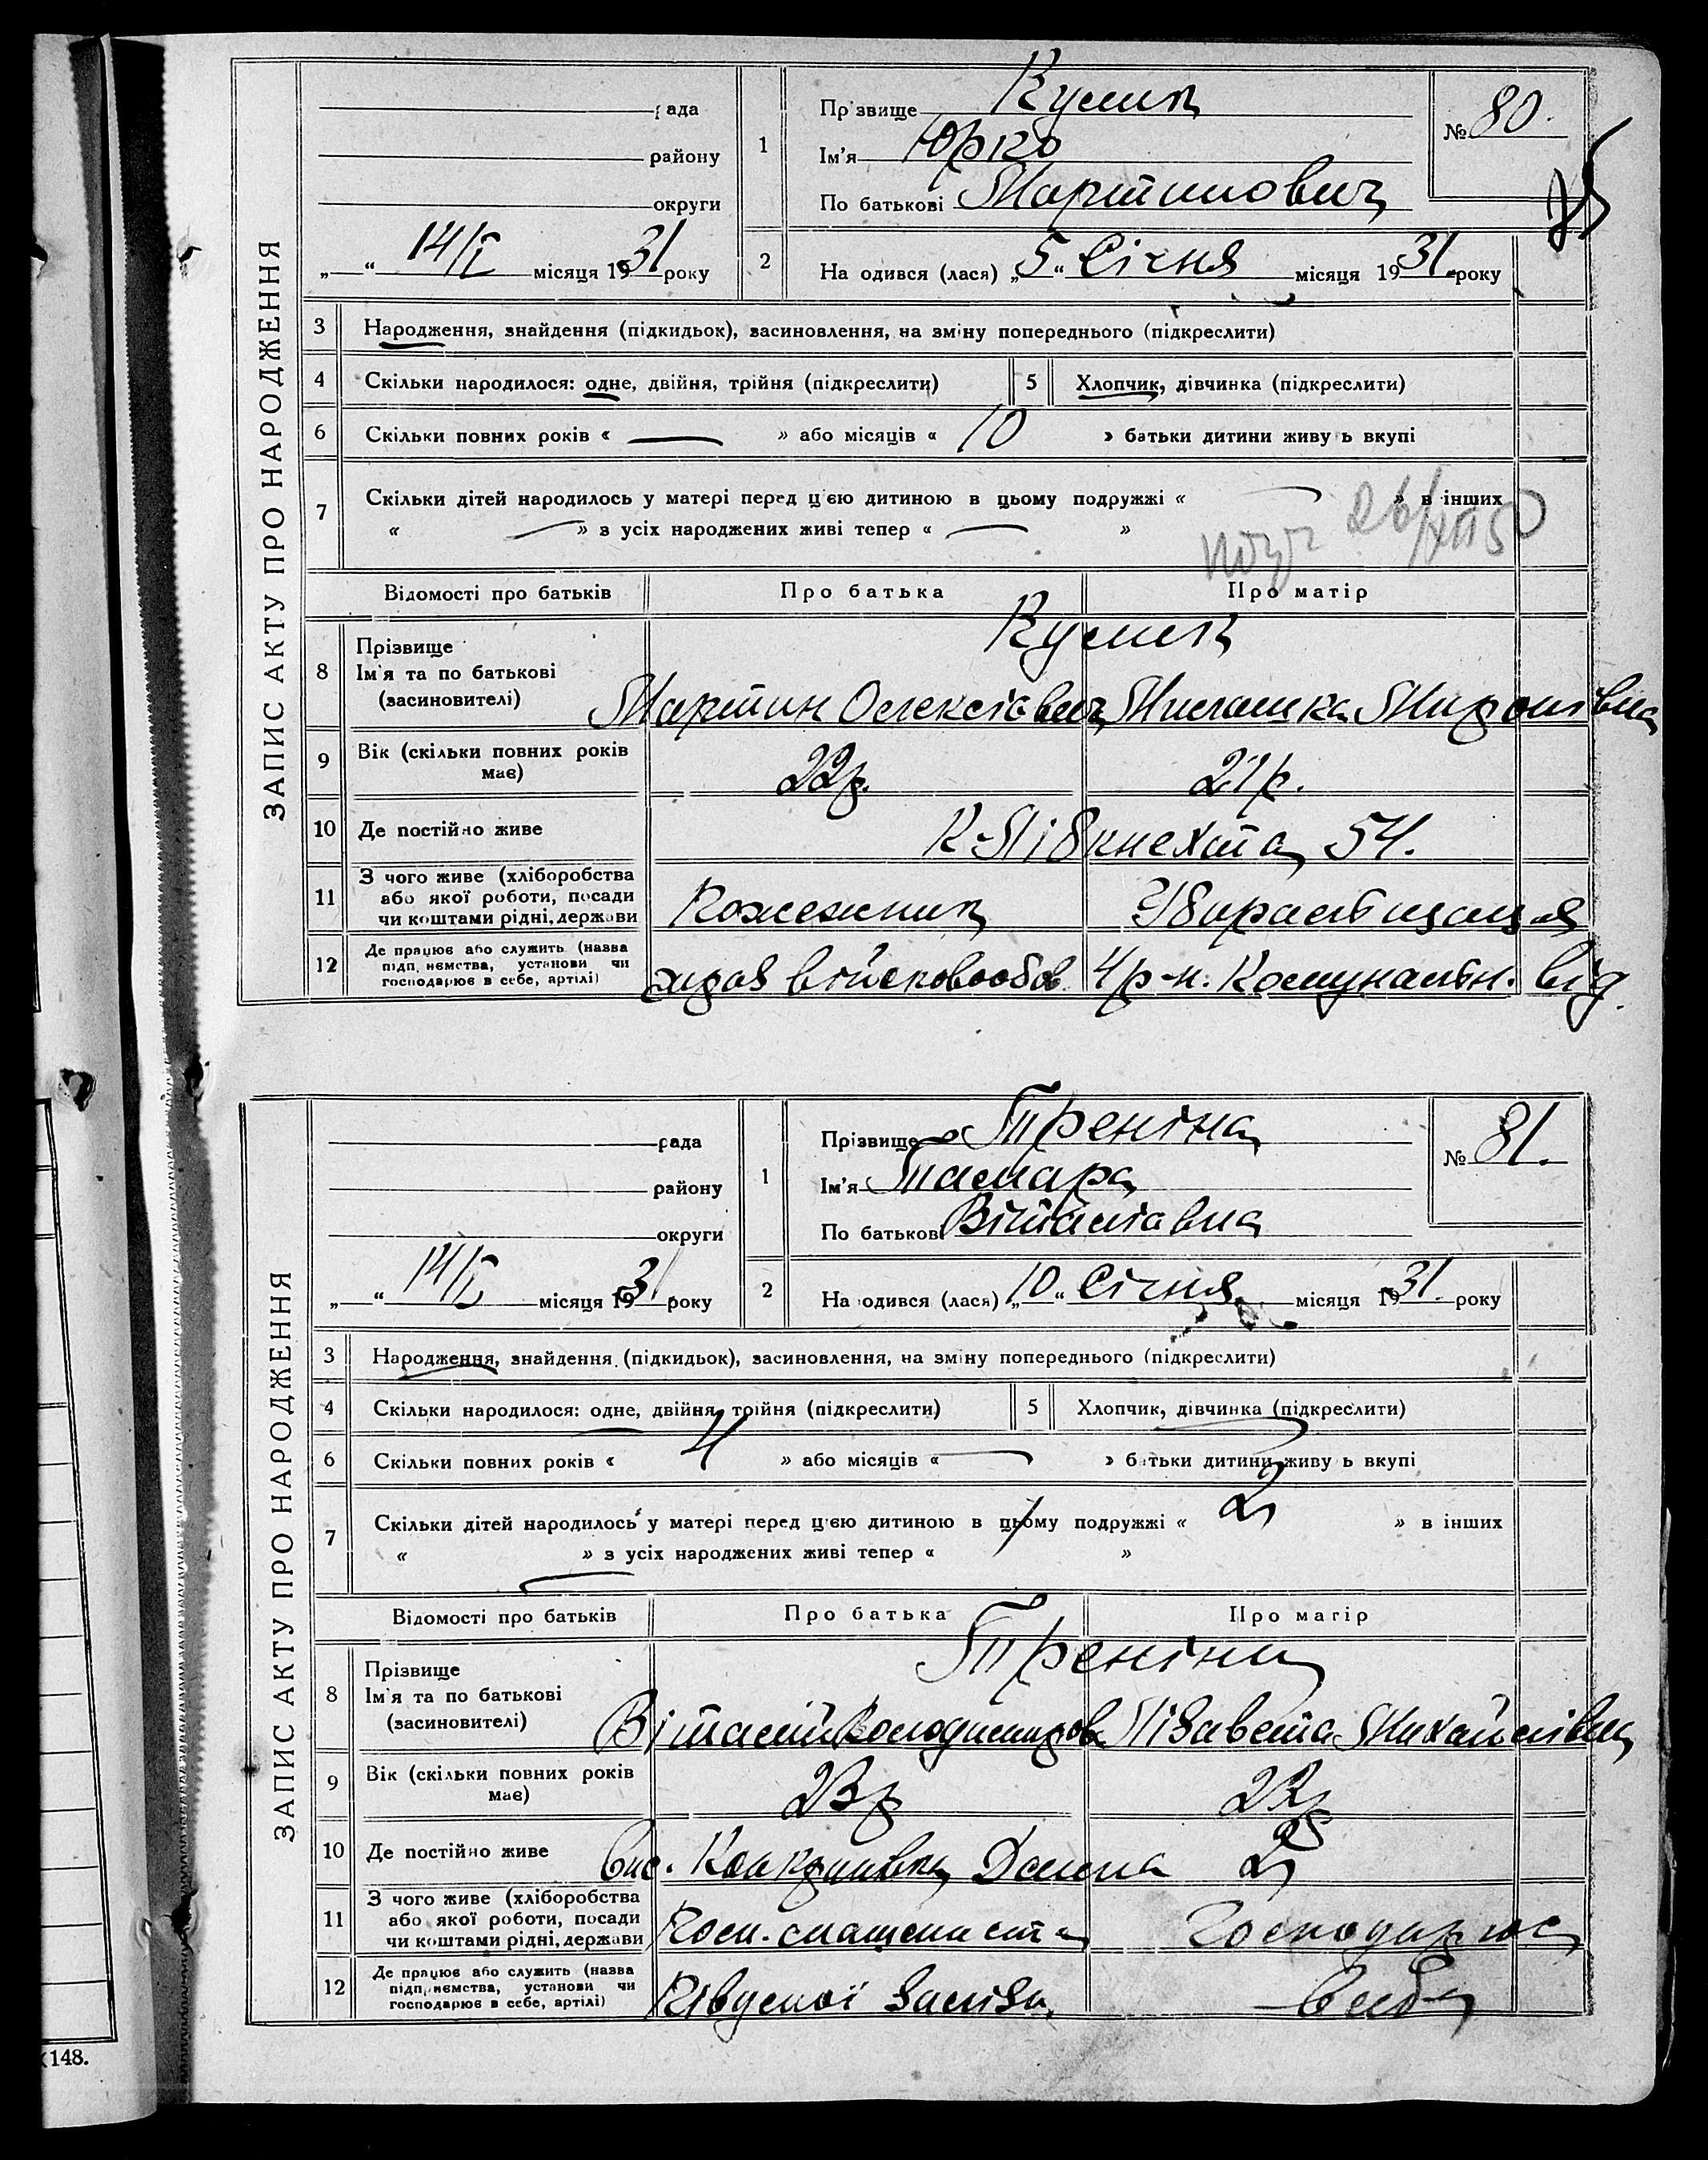 ЗАПИС АКТУ ПРО НАРОДЖЕННЯ
рада
району
округи
„ “ 14/I місяця 1931 року
1
Прізвище Кулик
Ім'я Юрко
По батькові Мартинович
№ 80.
2
На одився (лася) „5“ Січня місяця 1931. року
3 Народження, знайдення (підкидьок), засиновлення, на зміну попереднього (підкреслити)
4 Скільки народилося: одне, двійня, трійня (підкреслити)
5 Хлопчик, дівчинка (підкреслити)
6 Скільки повних років « — » або місяців « 10 » батьки дитини живу ь вкупі
7 Скільки дітей народилось у матері перед цією дитиною в цьому подружжі « — » в інших
« — » з усіх народжених живі тепер « — »
Відомості про батьків Про батька Про матір
8 Прізвище
Ім'я та по батькові
(засиновителі)
Кулик
Мартин Олексієвич Миронівна
9 Вік (скільки повних років має) 22р. 21р.
10 Де постійно живе К-Лібкнехта 54.
11 З чого живе (хліборобства або якої роботи, посади чи коштами рідні, держави Кожежник
12 Де працює або служить (назва підприємства, установи чи господарює в себе, артілі) 4 р-н. відд.
ЗАПИС АКТУ ПРО НАРОДЖЕННЯ
рада
району
округи
„ “ 14/I місяця 1931 року
1
Прізвище Треніна
Ім'я Тамара
По батькові Віталієвна
№ 81.
2
На одився (лася) „10“ Січня місяця 1931. року
3 Народження, знайдення (підкидьок), засиновлення, на зміну попереднього (підкреслити)
4 Скільки народилося: одне, двійня, трійня (підкреслити)
5 Хлопчик, дівчинка (підкреслити)
6 Скільки повних років « 4 » або місяців « — » батьки дитини живу ь вкупі
7 Скільки дітей народилось у матері перед цією дитиною в цьому подружжі « 2 » в інших
« — » з усіх народжених живі тепер « 1 »
Відомості про батьків Про батька Про матір
8 Прізвище
Ім'я та по батькові
(засиновителі)
Треніни
Віталій Володимиров Лізавета Михайлівна
9 Вік (скільки повних років має) 23р 22р
10 Де постійно живе
11 З чого живе (хліборобства або якої роботи, посади чи коштами рідні, держави Господарює
12 Де працює або служить (назва підприємства, установи чи господарює в себе, артілі)
148.